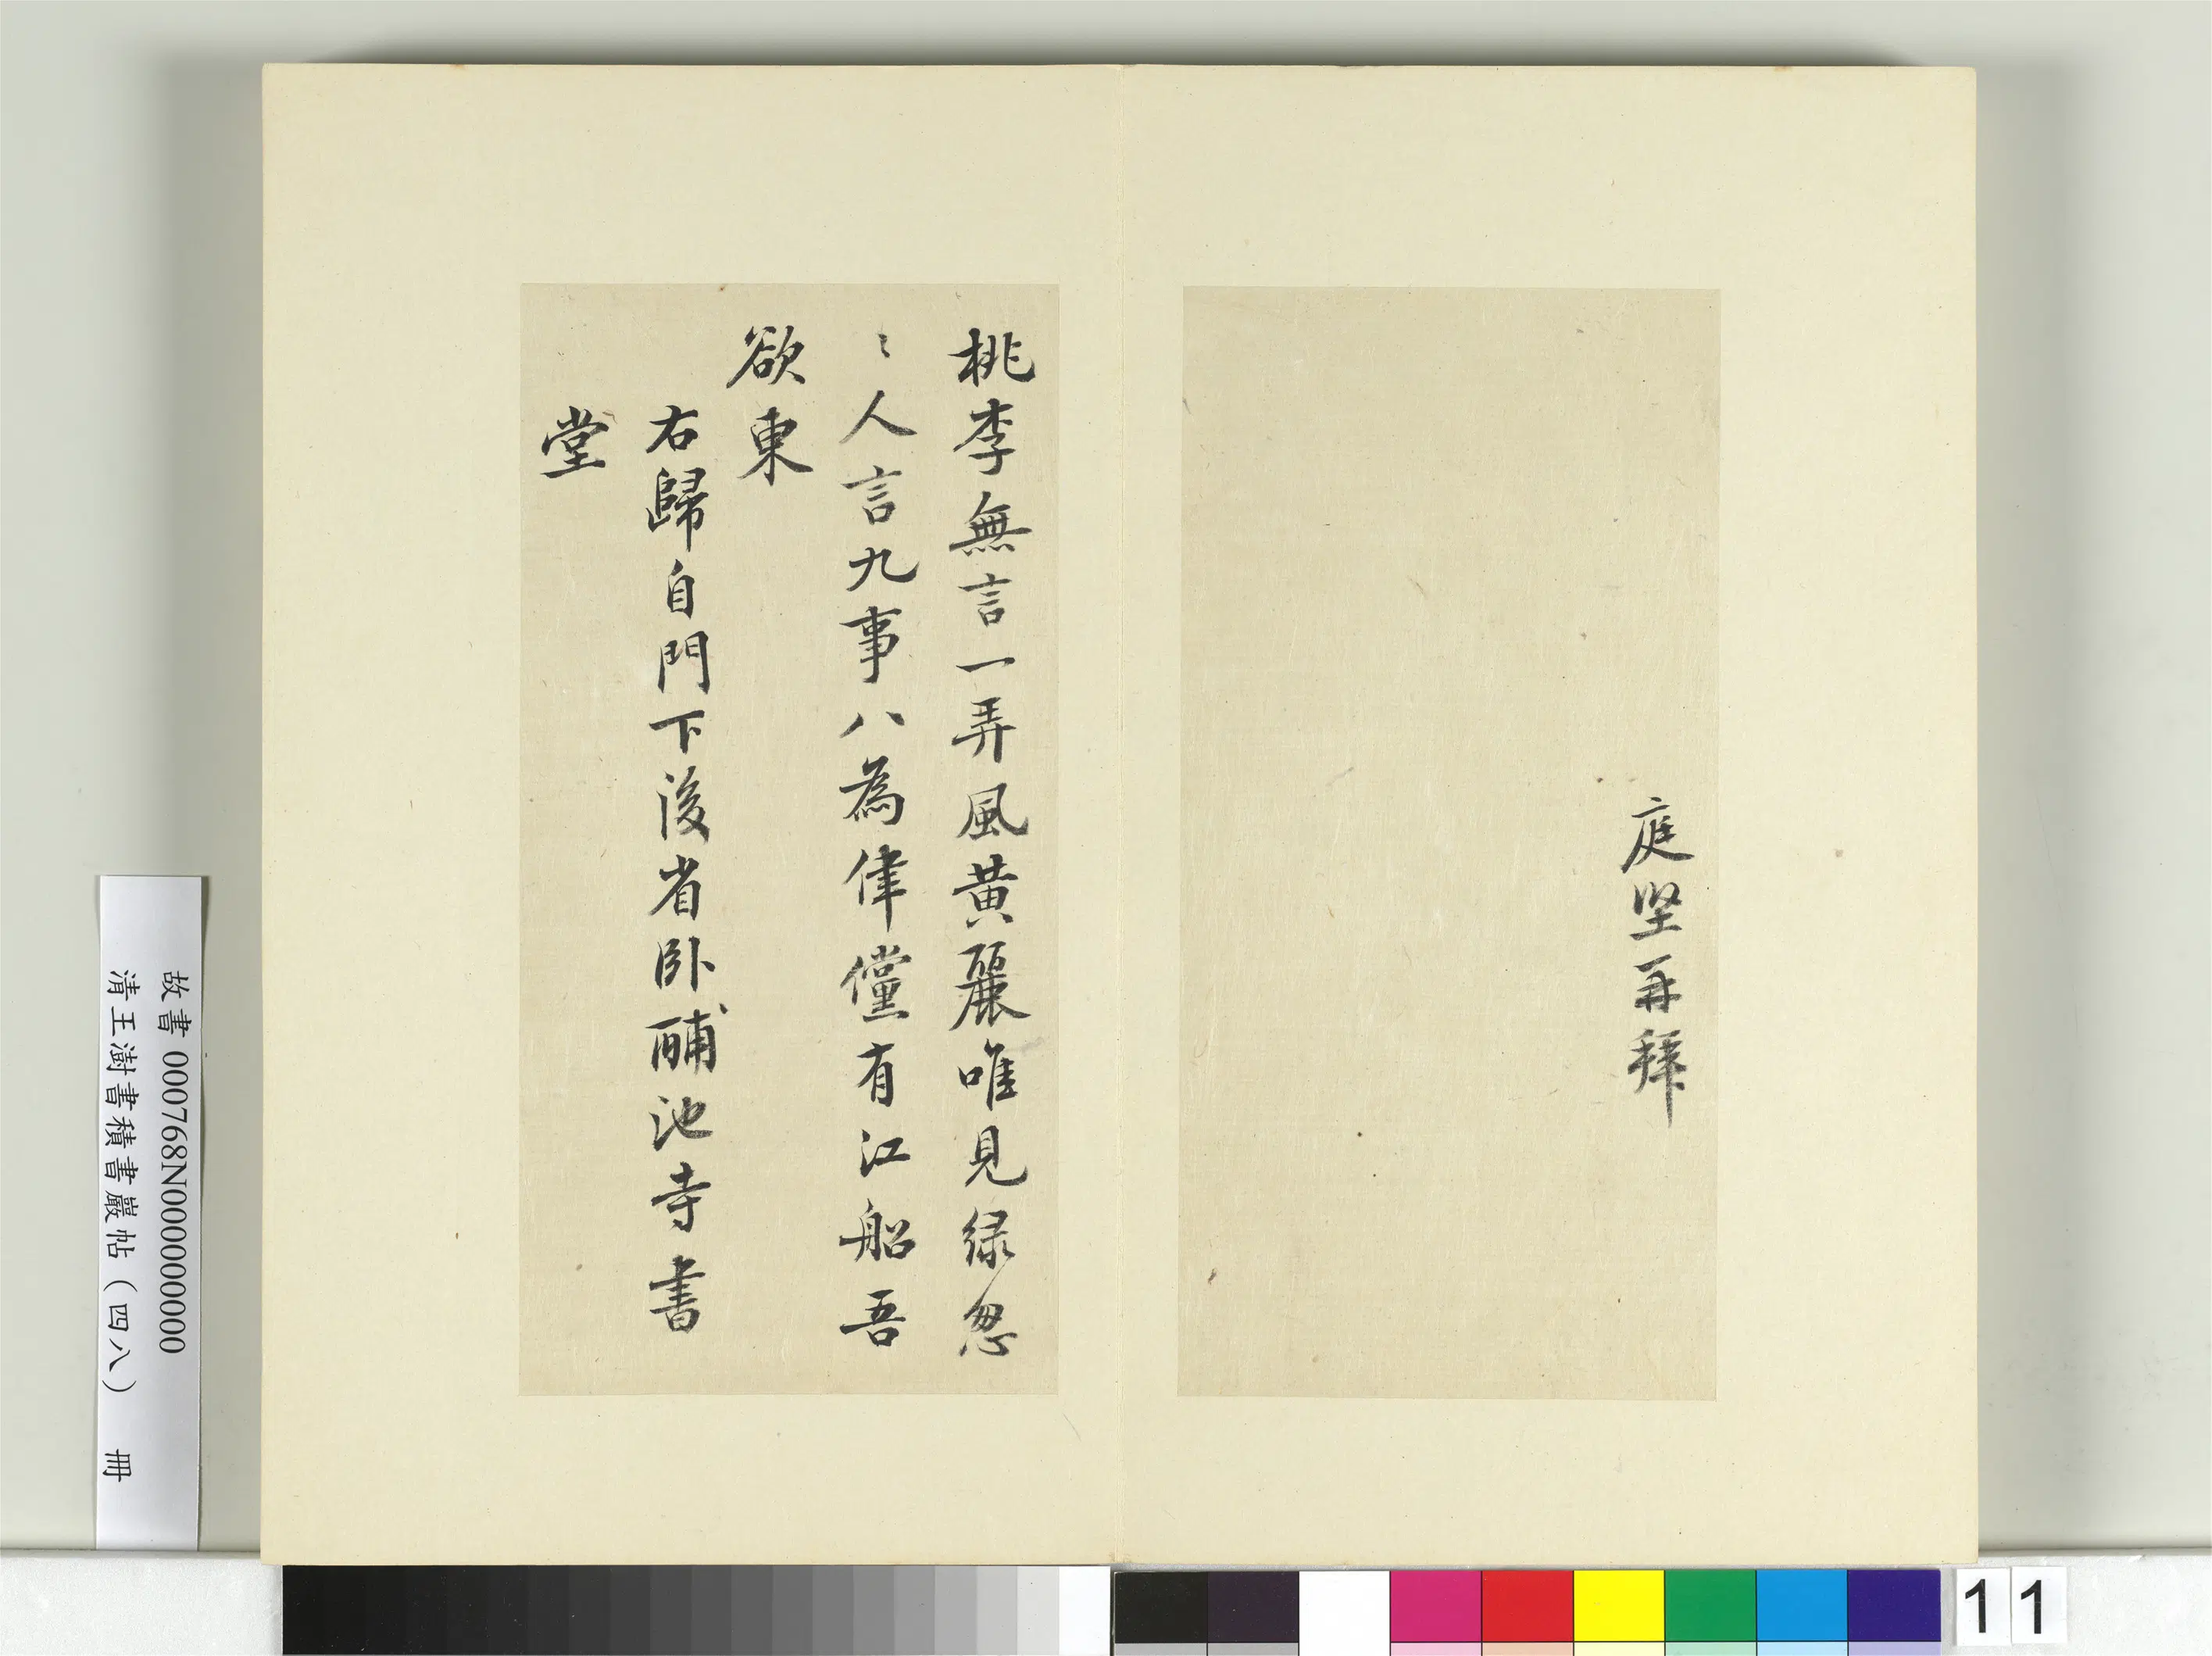 庭堅再拜
桃李無言一弄風黃麗唯見綠怱
〻人言九事八為律儻有江船吾
欲東
右歸自門下後省卧酺池寺書
堂
故書 000768N000000000
清王澍書積書巖帖（四八） 冊
11